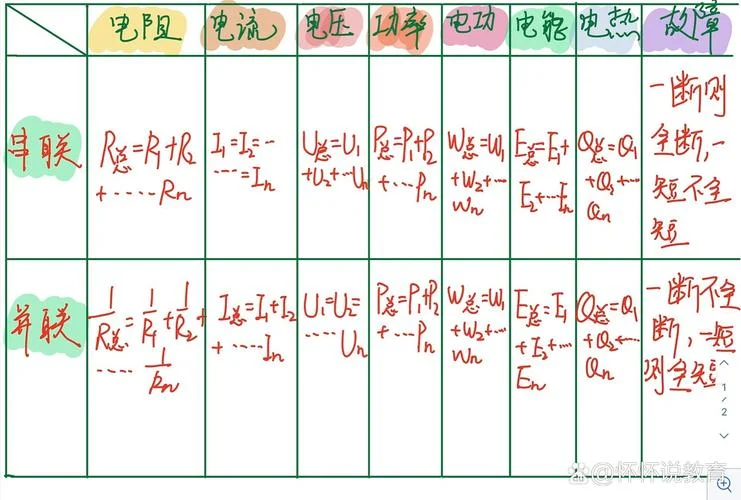 电阻 电流 电压 功率 电功 电能 电热 故障
串联
R总=R1+R2
+·····Rn
I1=I2=··
····=In
U总=U1
+U2+··Un
P总=P1+P2
+···Pn
W总=W1
+W2+···
Wn
E总=E1+
E2+··En
Q总=Q1
+Q2+···
Qn
一断则
全断,一
短不全
短
并联
1/R总=1/R1+1/R2+
·····1/Rn
I总=I1+I2
+····In
U1=U2=
·····Un
P总=P1+P2
+···Pn
W总=W1
+W2+···
Wn
E总=E1
+E2+···
En
Q总=Q1
+Q2+···
Qn
一断不全
断,一短
则全短
1/2
@怀怀说教育